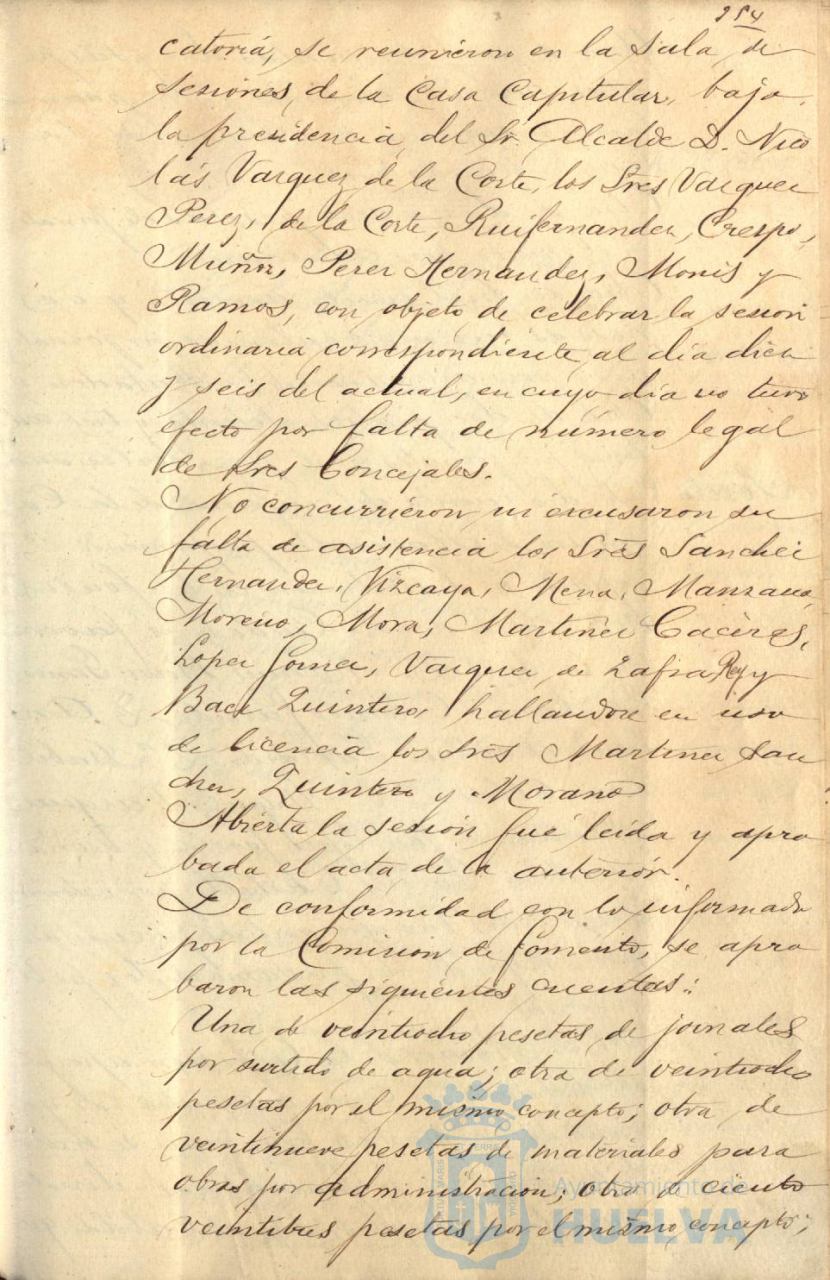 254
catoria, se reunieron en la sala de
sesiones, de la Casa Capitular, bajo
la presidencia, del Sr. Alcalde D. Nico
lás Vazquez de la Corte, los Sres Vazquez
Perez, de la Corte, Ruifernandez, Crespo,
Muñoz, Perez Hernandez, Monis y
Ramos, con objeto de celebrar la sesion
ordinaria correspondiente al dia diez
y seis del actual, en cuyo dia no tuvo
efecto por falta de número legal
de Sres Concejales.
No concurrieron ni excusaron su
falta de asistencia los Sres Sanchez
Hernandez, Vizcaya, Mena, Manzano,
Moreno, Mora, Martinez Cáceres,
Lopez Gomez, Vazquez de Zafra Rey y
Baez Quintero, hallandose en uso
de licencia los Sres Martinez San
chez, Quintero y Morano
Abierta la sesion fué leida y apro
bada el acta de la anterior.
De conformidad con lo informado
por la Comision de Fomento, se apro
baron las siguientes cuentas:
Una de veintiocho pesetas de jornales
por surtido de agua; otra de veintiocho
pesetas por el mismo concepto; otra de
veintinueve pesetas de materiales para
obras por administracion; otra de ciento
veintitres pesetas por el mismo concepto;
Ayuntamiento de
HUELVA